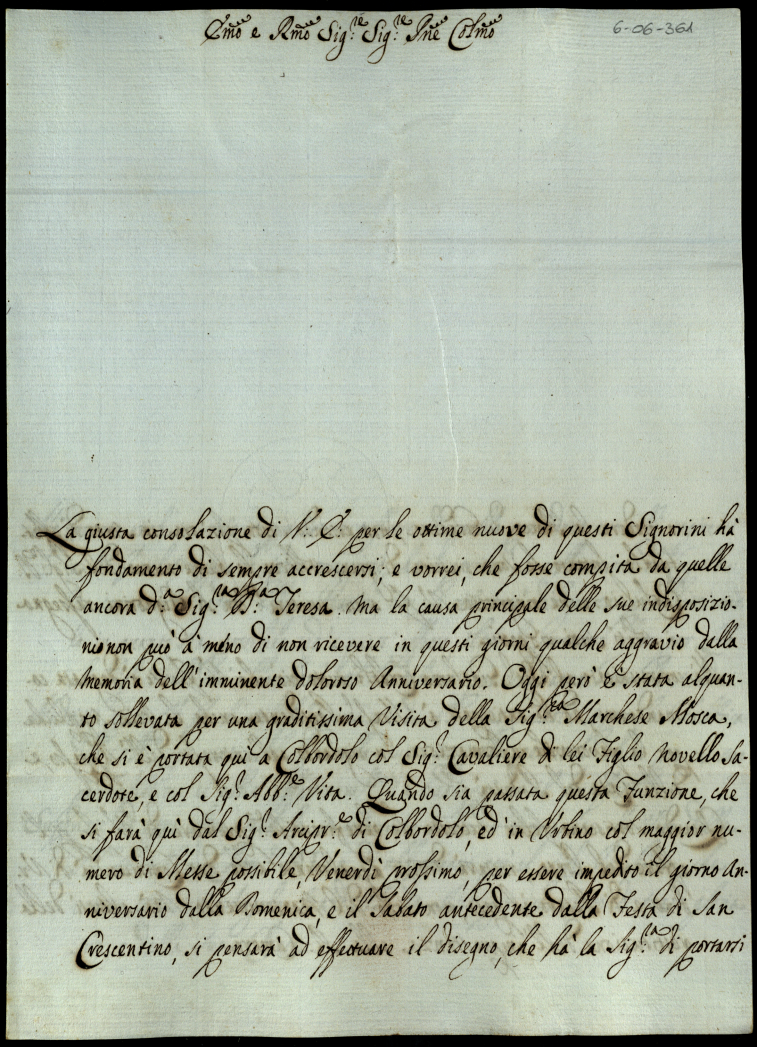 Emo e Rmo Sig:re Sig:re Pne Colmo
6-06-361
La giusta consolazione di V: E: per le ottime nuove di questi Signorini hà
fondamento di sempre accrescersi; e vorrei, che fosse compita da quelle
ancora d:a Sig:ra D:a Teresa. Ma la causa principale delle sue indisposizio-
ni non può à meno di non ricevere in questi giorni qualche aggravio dalla
memoria dell'imminente doloroso Anniversario. Oggi però è stata alquan-
to sollevata per una graditissima Visita della Sig:ra Marchese Mosca,
che si è portata qui a Colbordolo col Sig:r Cavaliere di lei Figlio novello Sa-
cerdote, e col Sig:r Abb:e Vita. Quando sia passata questa Funzione, che
si farà quì dal Sig:r Arcipr:e di Colbordolo, ed in Urbino col maggior nu-
mero di Messe possibile, Venerdì prossimo, per essere impedito il giorno An-
niversario dalla Domenica, e il Sabato antecedente dalla Festa di San
Crescentino, si pensarà ad effettuare il disegno, che hà la Sig:ra di portarsi